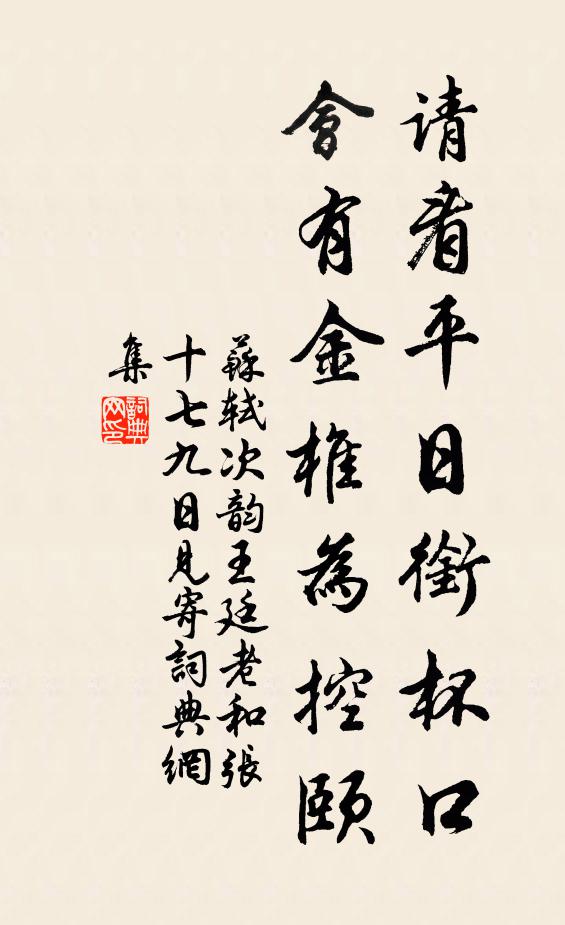 请看平日銜杯口
會有金椎為控頤
蘇軾次韵王廷老和張
十七九日見寄詞典網
集
詞典
网印